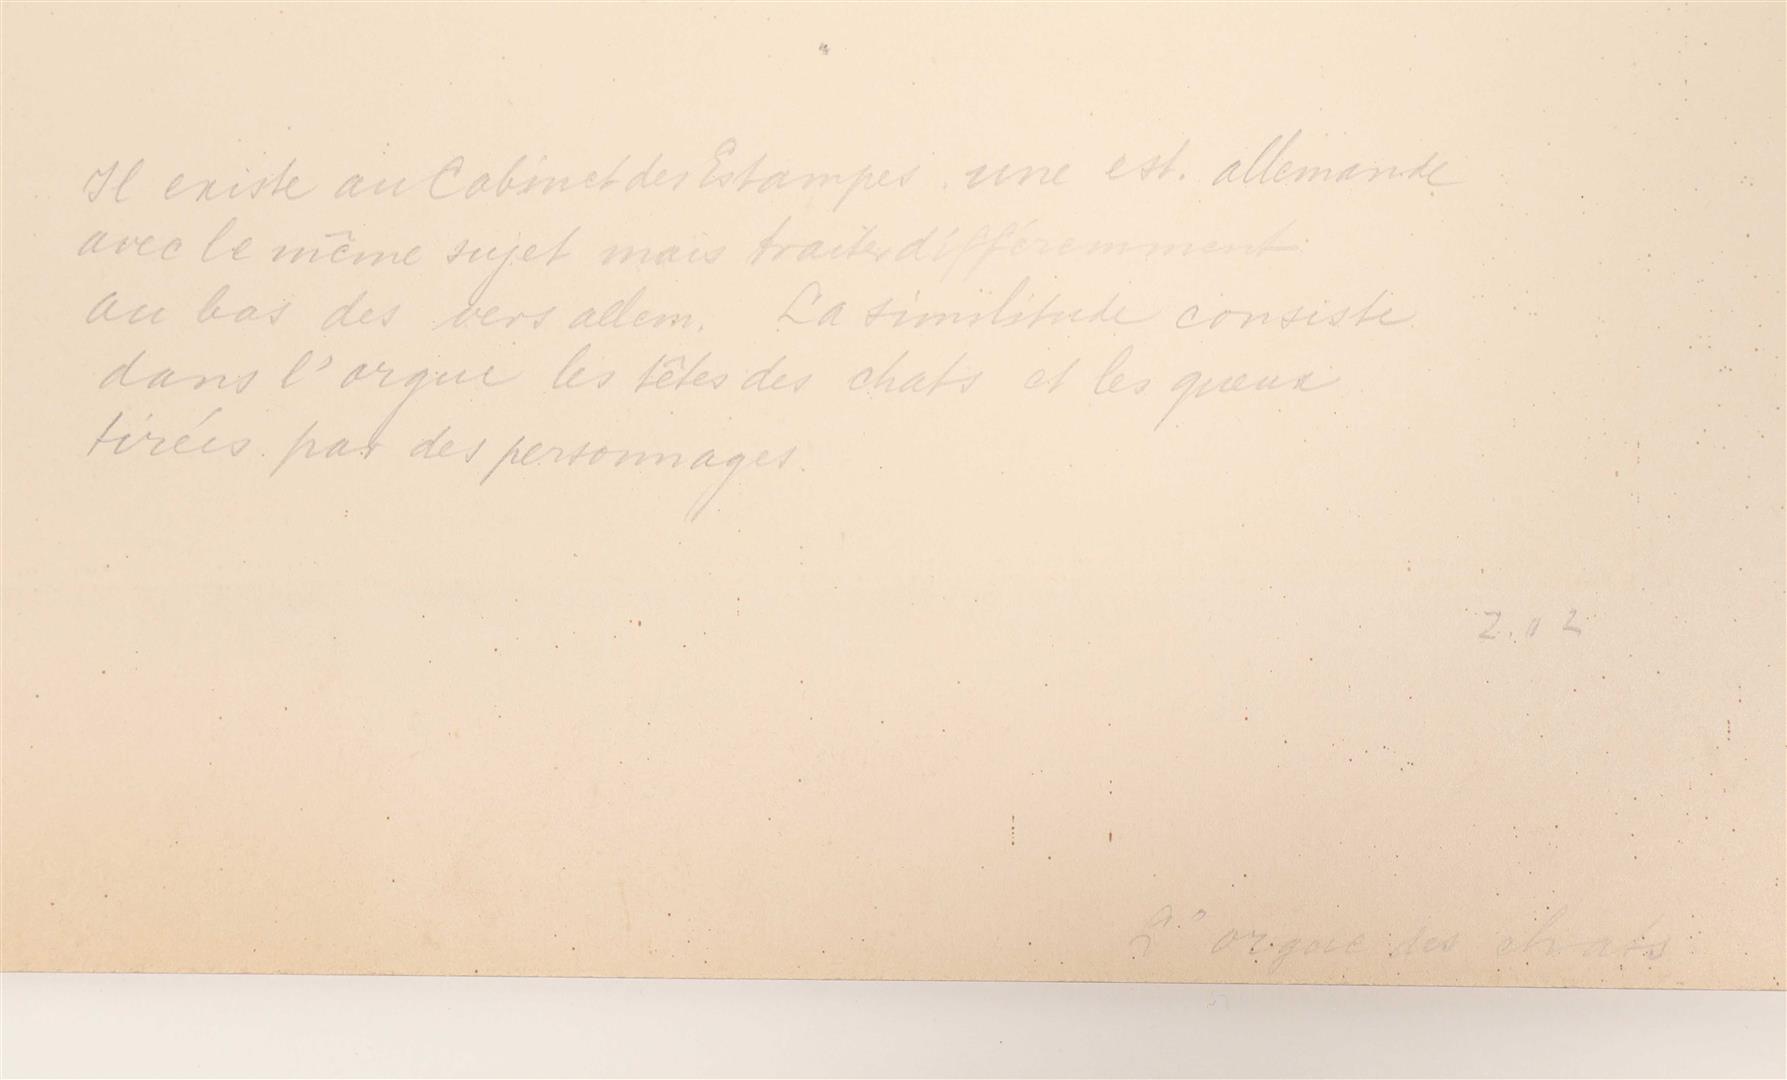 Il existe au Cabinet des Estampes. une est. allemande
avec le même sujet mais traités différemment
au bas des vers allem. La similitude consiste
dans l'orgue les têtes des chats et les queux
tirées par des personnages.
2.02
L'orgue des chats